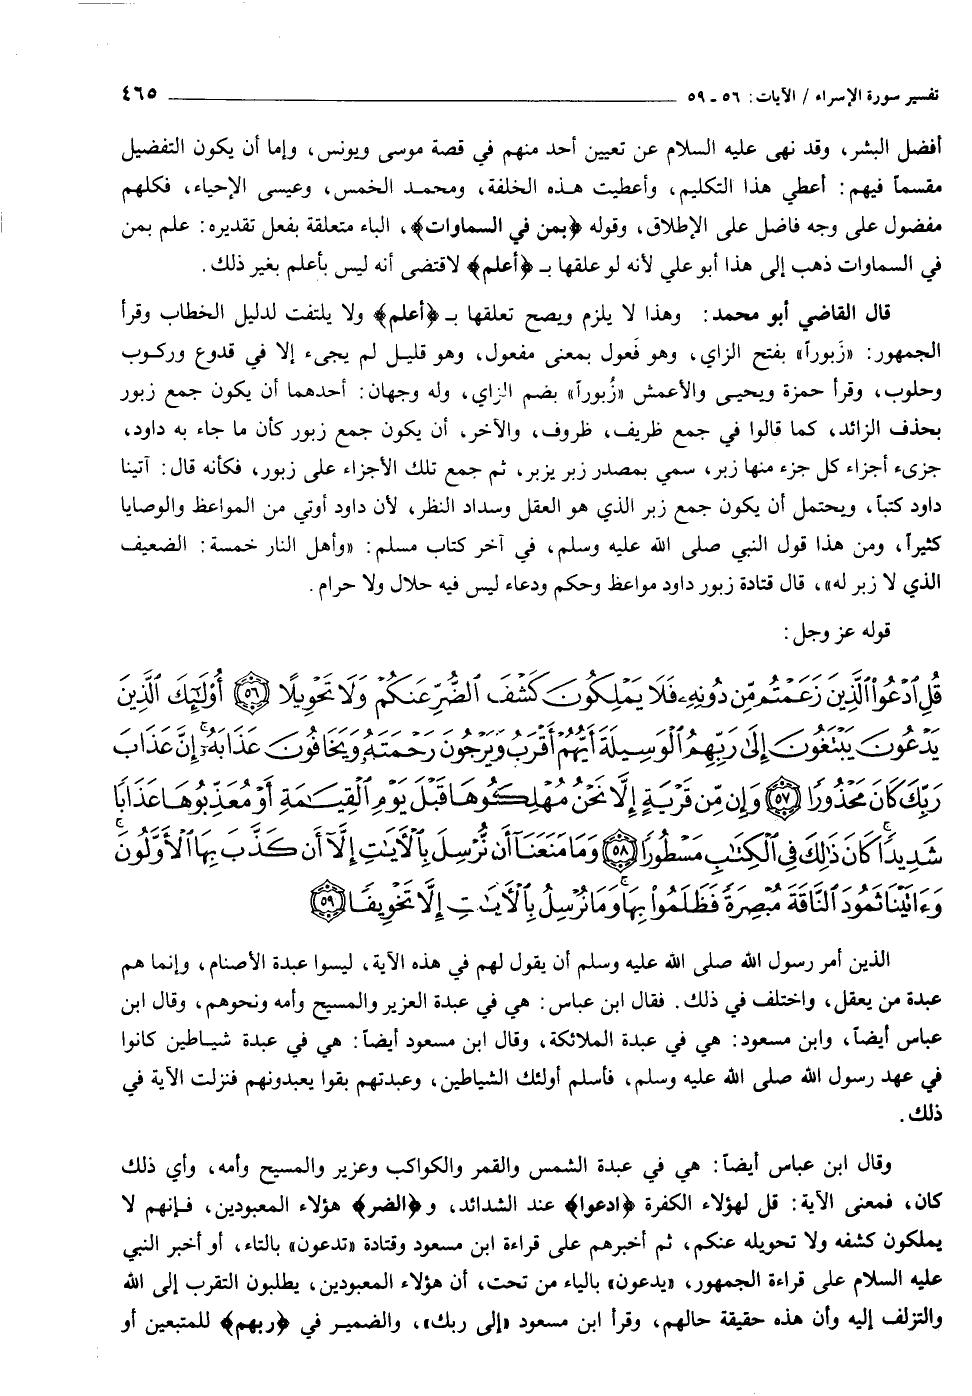 تفسير سورة الإسراء / الآيات: ٥٦ - ٥٩ ٤٦٥
أفضل البشر، وقد نهى عليه السلام عن تعيين أحد منهم في قصة موسى ويونس، وإما أن يكون التفضيل
مقسماً فيهم: أعطي هذا التكليم، وأعطيت هذه الخلفة، ومحمد الخمس، وعيسى الإحياء، فكلهم
مفضول على وجه فاضل على الإطلاق، وقوله ﴿بمن في السماوات﴾، الباء متعلقة بفعل تقديره: علم بمن
في السماوات ذهب إلى هذا أبو علي لأنه لو علقها بـ ﴿أعلم﴾ لاقتضى أنه ليس بأعلم بغير ذلك.
قال القاضي أبو محمد: وهذا لا يلزم ويصح تعلقها بـ ﴿أعلم﴾ ولا يلتفت لدليل الخطاب وقرأ
الجمهور: «زَبوراً» بفتح الزاي، وهو فَعول بمعنى مفعول، وهو قليل لم يجىء إلا في قدوع وركوب
وحلوب، وقرأ حمزة ويحيى والأعمش «زُبوراً» بضم الزاي، وله وجهان: أحدهما أن يكون جمع زبور
بحذف الزائد، كما قالوا في جمع ظريف، ظروف، والآخر، أن يكون جمع زبور كأن ما جاء به داود،
جزىء أجزاء كل جزء منها زبر، سمي بمصدر زبر يزبر، ثم جمع تلك الأجزاء على زبور، فكأنه قال: آتينا
داود كتباً، ويحتمل أن يكون جمع زبر الذي هو العقل وسداد النظر، لأن داود أوتي من المواعظ والوصايا
كثيراً، ومن هذا قول النبي صلى الله عليه وسلم، في آخر كتاب مسلم: «وأهل النار خمسة: الضعيف
الذي لا زبر له»، قال قتادة زبور داود مواعظ وحكم ودعاء ليس فيه حلال ولا حرام.
قوله عز وجل:
قُلِ ٱدْعُوا۟ ٱلَّذِينَ زَعَمْتُم مِّن دُونِهِۦ فَلَا يَمْلِكُونَ كَشْفَ ٱلضُّرِّ عَنكُمْ وَلَا تَحْوِيلًا ﴿٥٦﴾ أُو۟لَٰٓئِكَ ٱلَّذِينَ
يَدْعُونَ يَبْتَغُونَ إِلَىٰ رَبِّهِمُ ٱلْوَسِيلَةَ أَيُّهُمْ أَقْرَبُ وَيَرْجُونَ رَحْمَتَهُۥ وَيَخَافُونَ عَذَابَهُۥٓ ۚ إِنَّ عَذَابَ
رَبِّكَ كَانَ مَحْذُورًا ﴿٥٧﴾ وَإِن مِّن قَرْيَةٍ إِلَّا نَحْنُ مُهْلِكُوهَا قَبْلَ يَوْمِ ٱلْقِيَٰمَةِ أَوْ مُعَذِّبُوهَا عَذَابًا
شَدِيدًا ۚ كَانَ ذَٰلِكَ فِى ٱلْكِتَٰبِ مَسْطُورًا ﴿٥٨﴾ وَمَا مَنَعَنَآ أَن نُّرْسِلَ بِٱلْءَايَٰتِ إِلَّآ أَن كَذَّبَ بِهَا ٱلْأَوَّلُونَ ۚ
وَءَاتَيْنَا ثَمُودَ ٱلنَّاقَةَ مُبْصِرَةً فَظَلَمُوا۟ بِهَا ۚ وَمَا نُرْسِلُ بِٱلْءَايَٰتِ إِلَّا تَخْوِيفًا ﴿٥٩﴾
الذين أمر رسول الله صلى الله عليه وسلم أن يقول لهم في هذه الآية، ليسوا عبدة الأصنام، وإنما هم
عبدة من يعقل، واختلف في ذلك. فقال ابن عباس: هي في عبدة العزير والمسيح وأمه ونحوهم، وقال ابن
عباس أيضاً، وابن مسعود: هي في عبدة الملائكة، وقال ابن مسعود أيضاً: هي في عبدة شياطين كانوا
في عهد رسول الله صلى الله عليه وسلم، فأسلم أولئك الشياطين، وعبدتهم بقوا يعبدونهم فنزلت الآية في
ذلك.
وقال ابن عباس أيضاً: هي في عبدة الشمس والقمر والكواكب وعزير والمسيح وأمه، وأي ذلك
كان، فمعنى الآية: قل لهؤلاء الكفرة ﴿ادعوا﴾ عند الشدائد، و ﴿الضر﴾ هؤلاء المعبودين، فإنهم لا
يملكون كشفه ولا تحويله عنكم، ثم أخبرهم على قراءة ابن مسعود وقتادة «تدعون» بالتاء، أو أخبر النبي
عليه السلام على قراءة الجمهور، «يدعون» بالياء من تحت، أن هؤلاء المعبودين، يطلبون التقرب إلى الله
والتزلف إليه وأن هذه حقيقة حالهم، وقرأ ابن مسعود «إلى ربك»، والضمير في ﴿ربهم﴾ للمتبعين أو